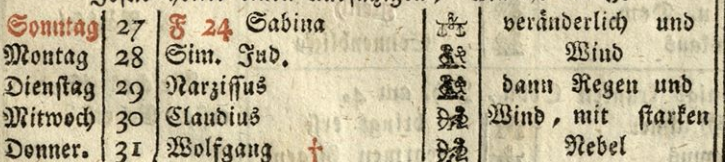 Sonntag 27 F 24 Sabina veränderlich und
Montag 28 Sim. Jud. Wind
Dienſtag 29 Narziſſus dann Regen und
Mitwoch 30 Claudius Wind, mit ſtarken
Donner. 31 Wolfgang † Nebel